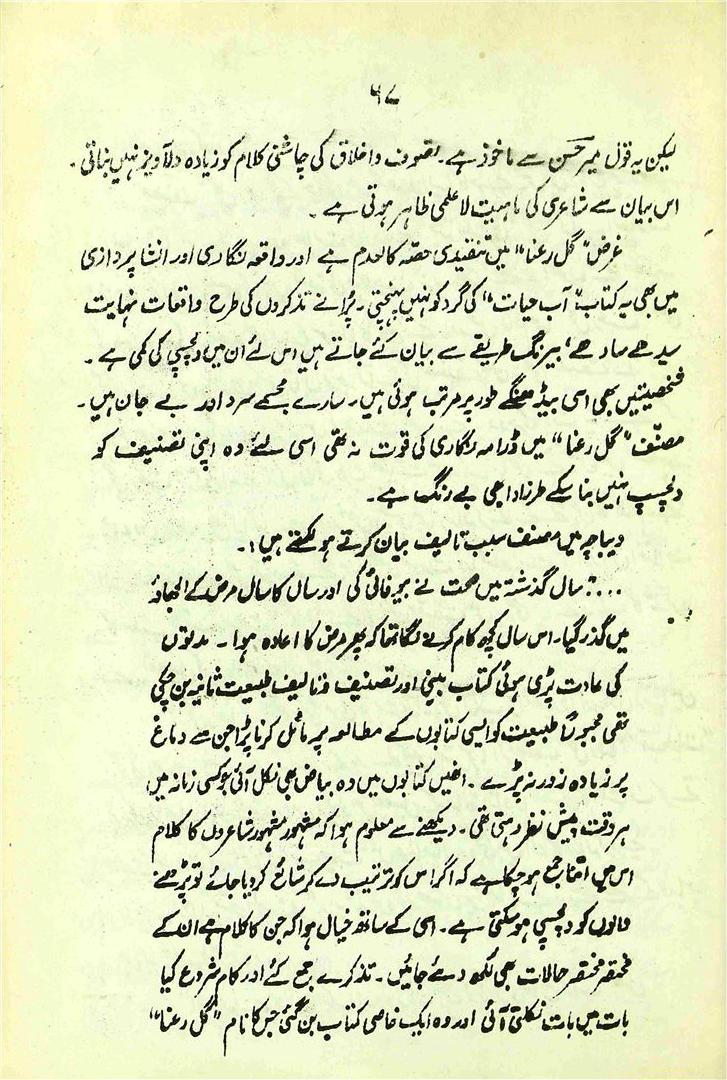 ۶۷
لیکن یہ قول میر حسن سے ماخوذ ہے۔ تصوف و اخلاق کی چاشنی کلام کو زیادہ دلآویز نہیں بناتی۔
اس بیان سے شاعری کی ماہیت لاعلمی ظاہر ہوتی ہے۔
غرض "گل رعنا" میں تنقیدی حصہ کالعدم ہے اور واقعہ نگاری اور انشا پردازی
میں بھی یہ کتاب "آب حیات" کی گرد کو نہیں پہنچتی۔ پرانے تذکروں کی طرح واقعات نہایت
سیدھے سادھے، بیرنگ طریقے سے بیان کئے جاتے ہیں اس لئے ان میں دلچسپی کی کمی ہے۔
شخصیتیں بھی اسی بیڈھنگے طور پر مرتب ہوئی ہیں۔ سارے مجسمے سرد اور بے جان ہیں۔
مصنّف "گل رعنا" میں ڈرامہ نگاری کی قوت نہ تھی اسی لئے وہ اپنی تصنیف کو
دلچسپ نہیں بنا سکے طرز ادا بھی بے رنگ ہے۔
دیباچہ میں مصنف سبب تالیف بیان کرتے ہو لکھتے ہیں:۔
"... سال گذشتہ میں صحت نے بیوفائی کی اور سال کا سال مرض کے الجھاؤ
میں گذر گیا۔ اس سال کچھ کام کرنے لگا تھا کہ پھر مرض کا اعادہ ہوا۔ مدتوں
کی عادت پڑی ہوئی کتاب بینی اور تصنیف و تالیف طبیعت ثانیہ بن چکی
تھی مجبوراً طبیعت کو ایسی کتابوں کے مطالعہ پر مائل کرنا پڑا جن سے دماغ
پر زیادہ زور نہ پڑے۔ انھیں کتابوں میں وہ بیاض بھی نکل آئی جو کسی زمانہ میں
ہر وقت پیش نظر رہتی تھی۔ دیکھنے سے معلوم ہوا کہ مشہور مشہور شاعروں کا کلام
اس میں اتنا جمع ہو چکا ہے کہ اگر اس کو ترتیب دے کر شائع کر دیا جائے تو پڑھنے
والوں کو دلچسپی ہو سکتی ہے۔ اسی کے ساتھ خیال ہوا کہ جن کا کلام ہے ان کے
مختصر مختصر حالات بھی لکھ دئے جائیں۔ تذکرے جمع کئے اور کام شروع کیا
بات میں بات نکلتی آئی اور وہ ایک خاصی کتاب بن گئی جس کا نام "گل رعنا"